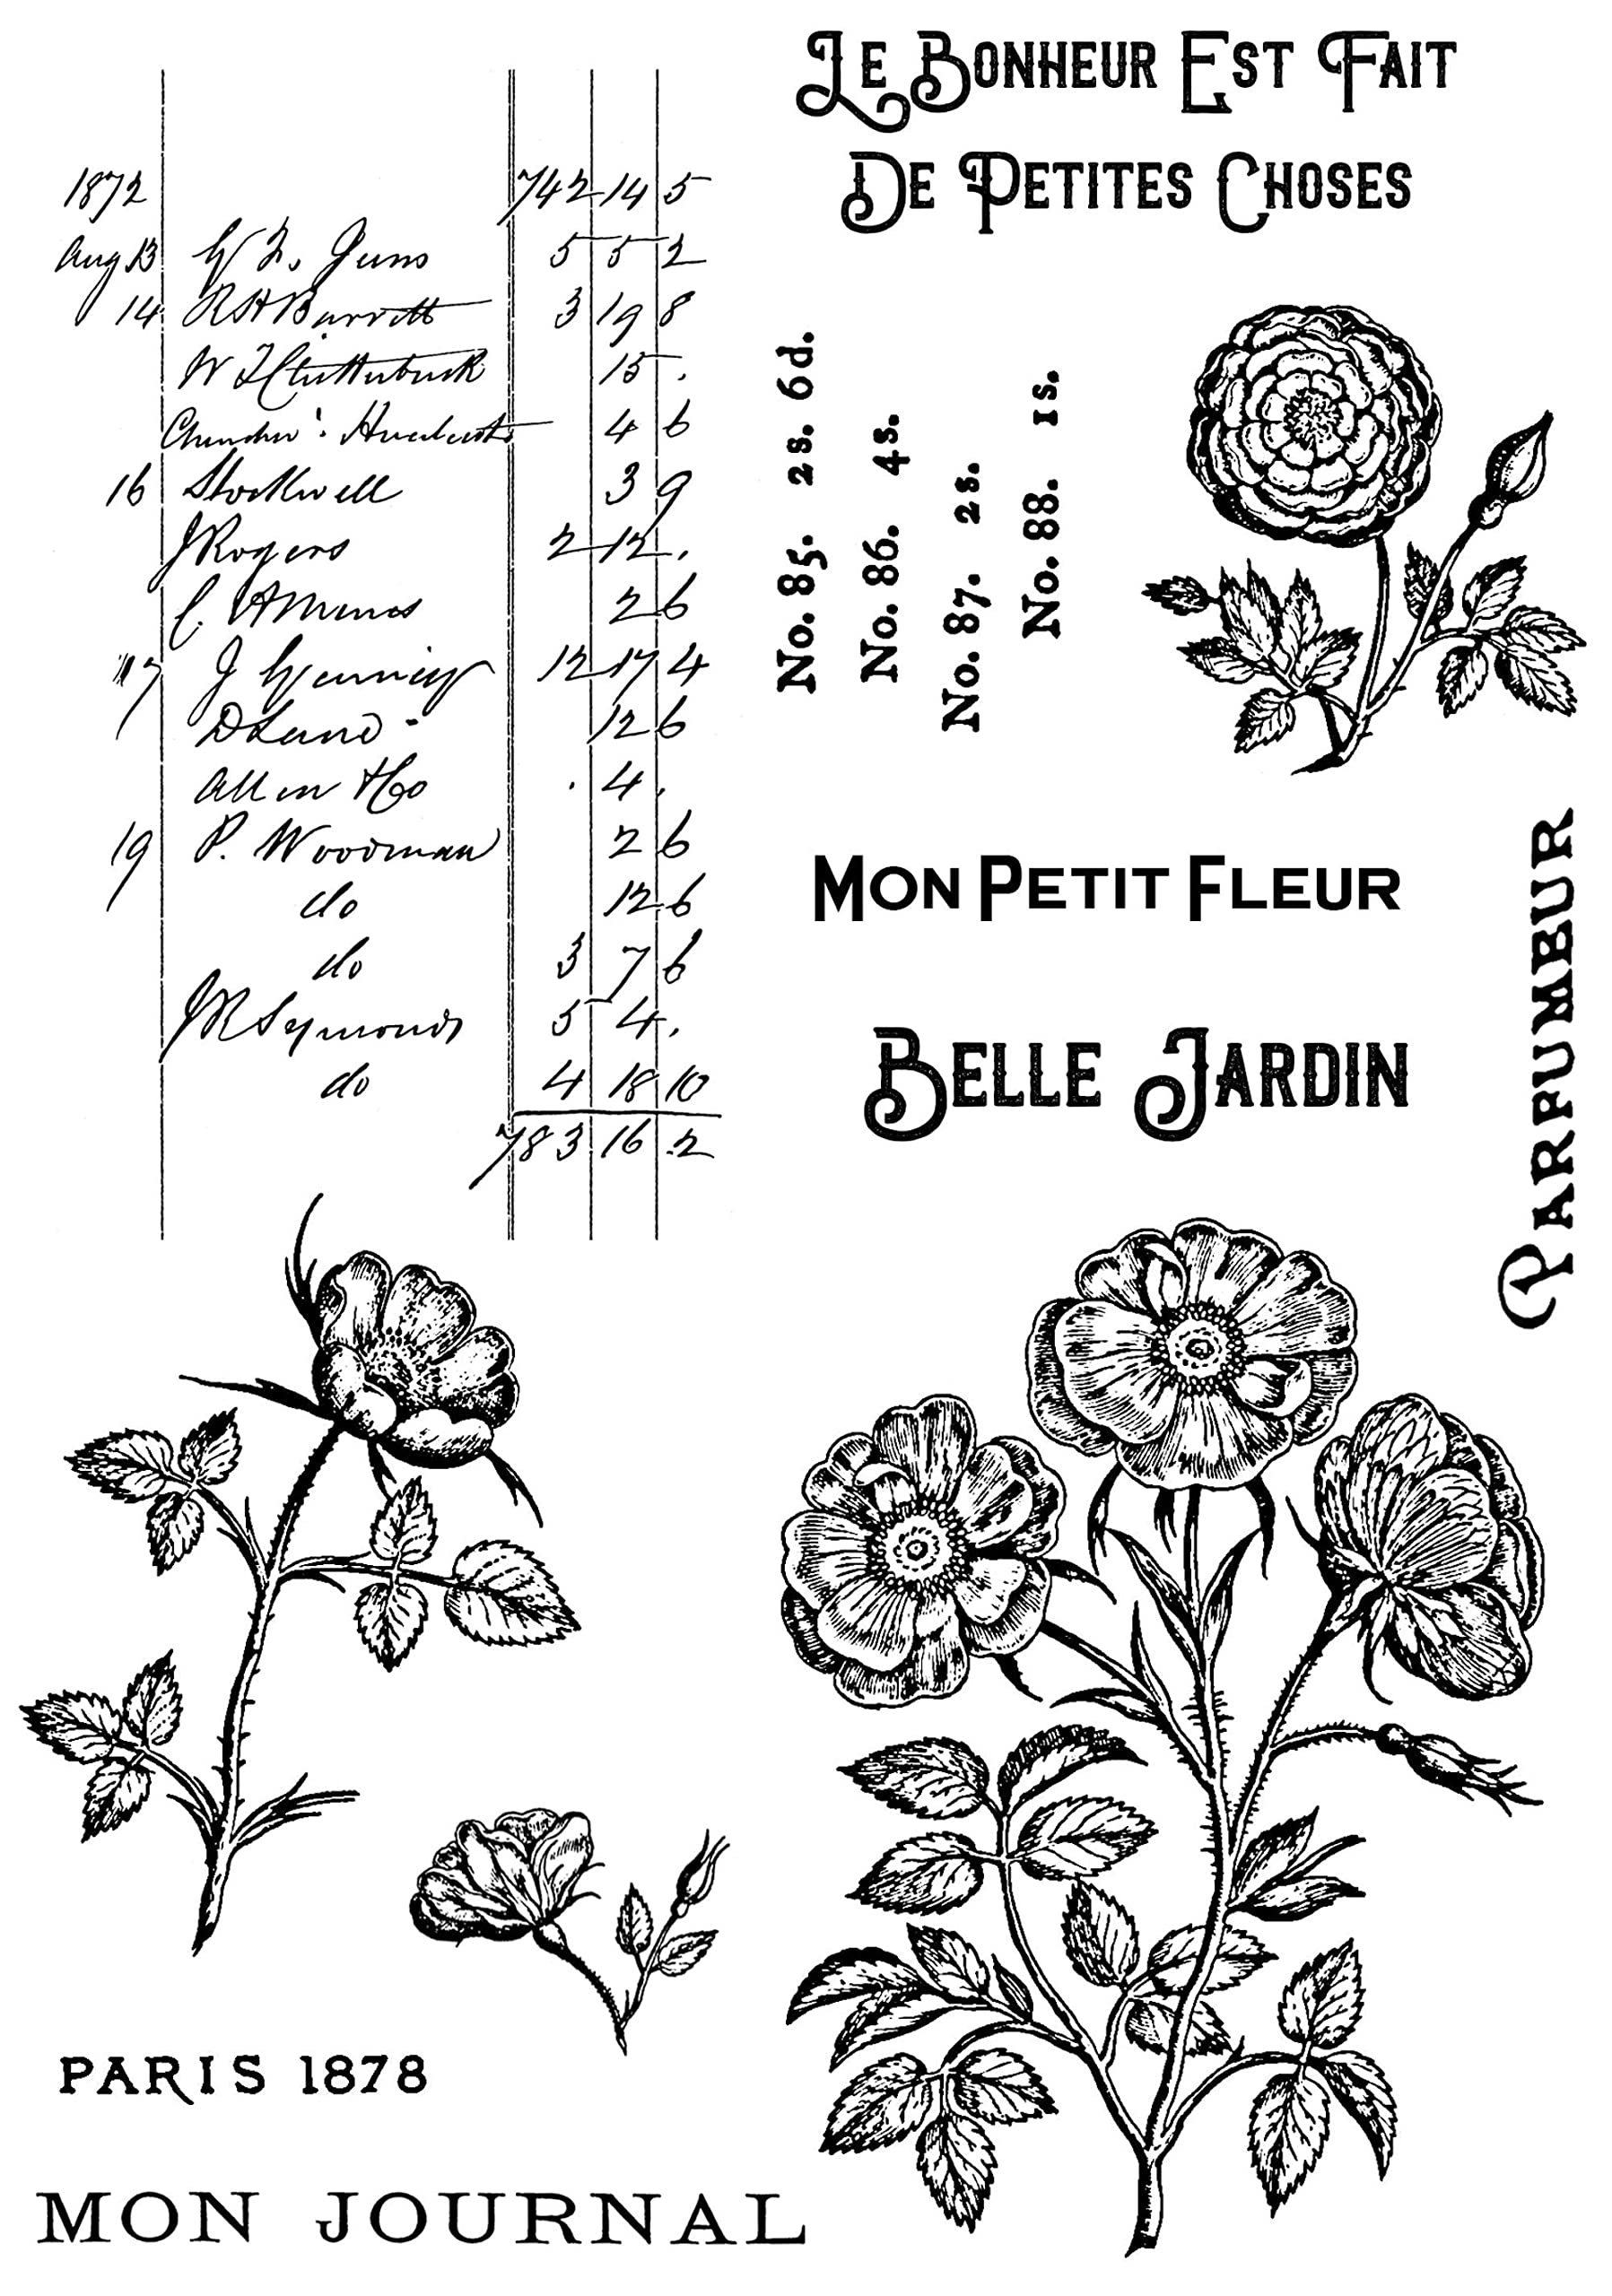 1872 742 14 5
Aug 13 5 5 2
14 R H Barrett 3 19 8
W J Clutterbuck 15 .
4 6
16 Stockwell 3 9
J Rogers 2 12 .
2 6
17 J 12 17 4
D Lane 12 6
Allen & Co . 4 .
19 P. Woodman 2 6
do 12 6
do 3 7 6
J R Symonds 5 4 .
do 4 18 10
783 16 2
LE BONHEUR EST FAIT
DE PETITES CHOSES
No. 85. 2s. 6d.
No. 86. 4s.
No. 87. 2s.
No. 88. 1s.
MON PETIT FLEUR
BELLE JARDIN
PARFUMBUR
PARIS 1878
MON JOURNAL